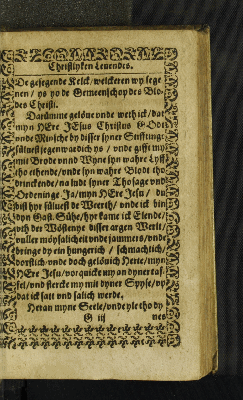 Christlyken Leuendes.
De gesegende Kelck/ welckeren wy sege
nen / ys yo de Gemeenschop des Blo-
des Christi.
Darümme gelöue vnde weth ick/ dat
myn HEre JEsus Christus Godt
vnde Minsche by disser syner Stifftinge
süluest jegenwardich ys / vnde gifft my
mit Brode vnnd Wyne syn wahre Lyff
tho ethende/ vnde syn wahre Blodt tho
drinckende/ na ludt syner Thosage vnd
Ordeninge Ja/ myn HEre Jesu / du
bist hyr süluest de Weerth/ vnde ick bin
dyn Gast. Sühe/ hyr kame ick Elende/
vth der Wöstenye disser argen Werlt/
vuller möysalicheit vnde jammers/ vnde
bringe dy ein hungerich / schmachtich/
dorstich vnde doch gelöuich Herte/ myn
HEre Jesu/ vorquicke my an dyner taf-
fel/ vnd stercke my mit dyner Spyse/ vp
dat ick satt vnd salich werde.
Heran myne Seele/ vnde yle tho dy
G iij
nes